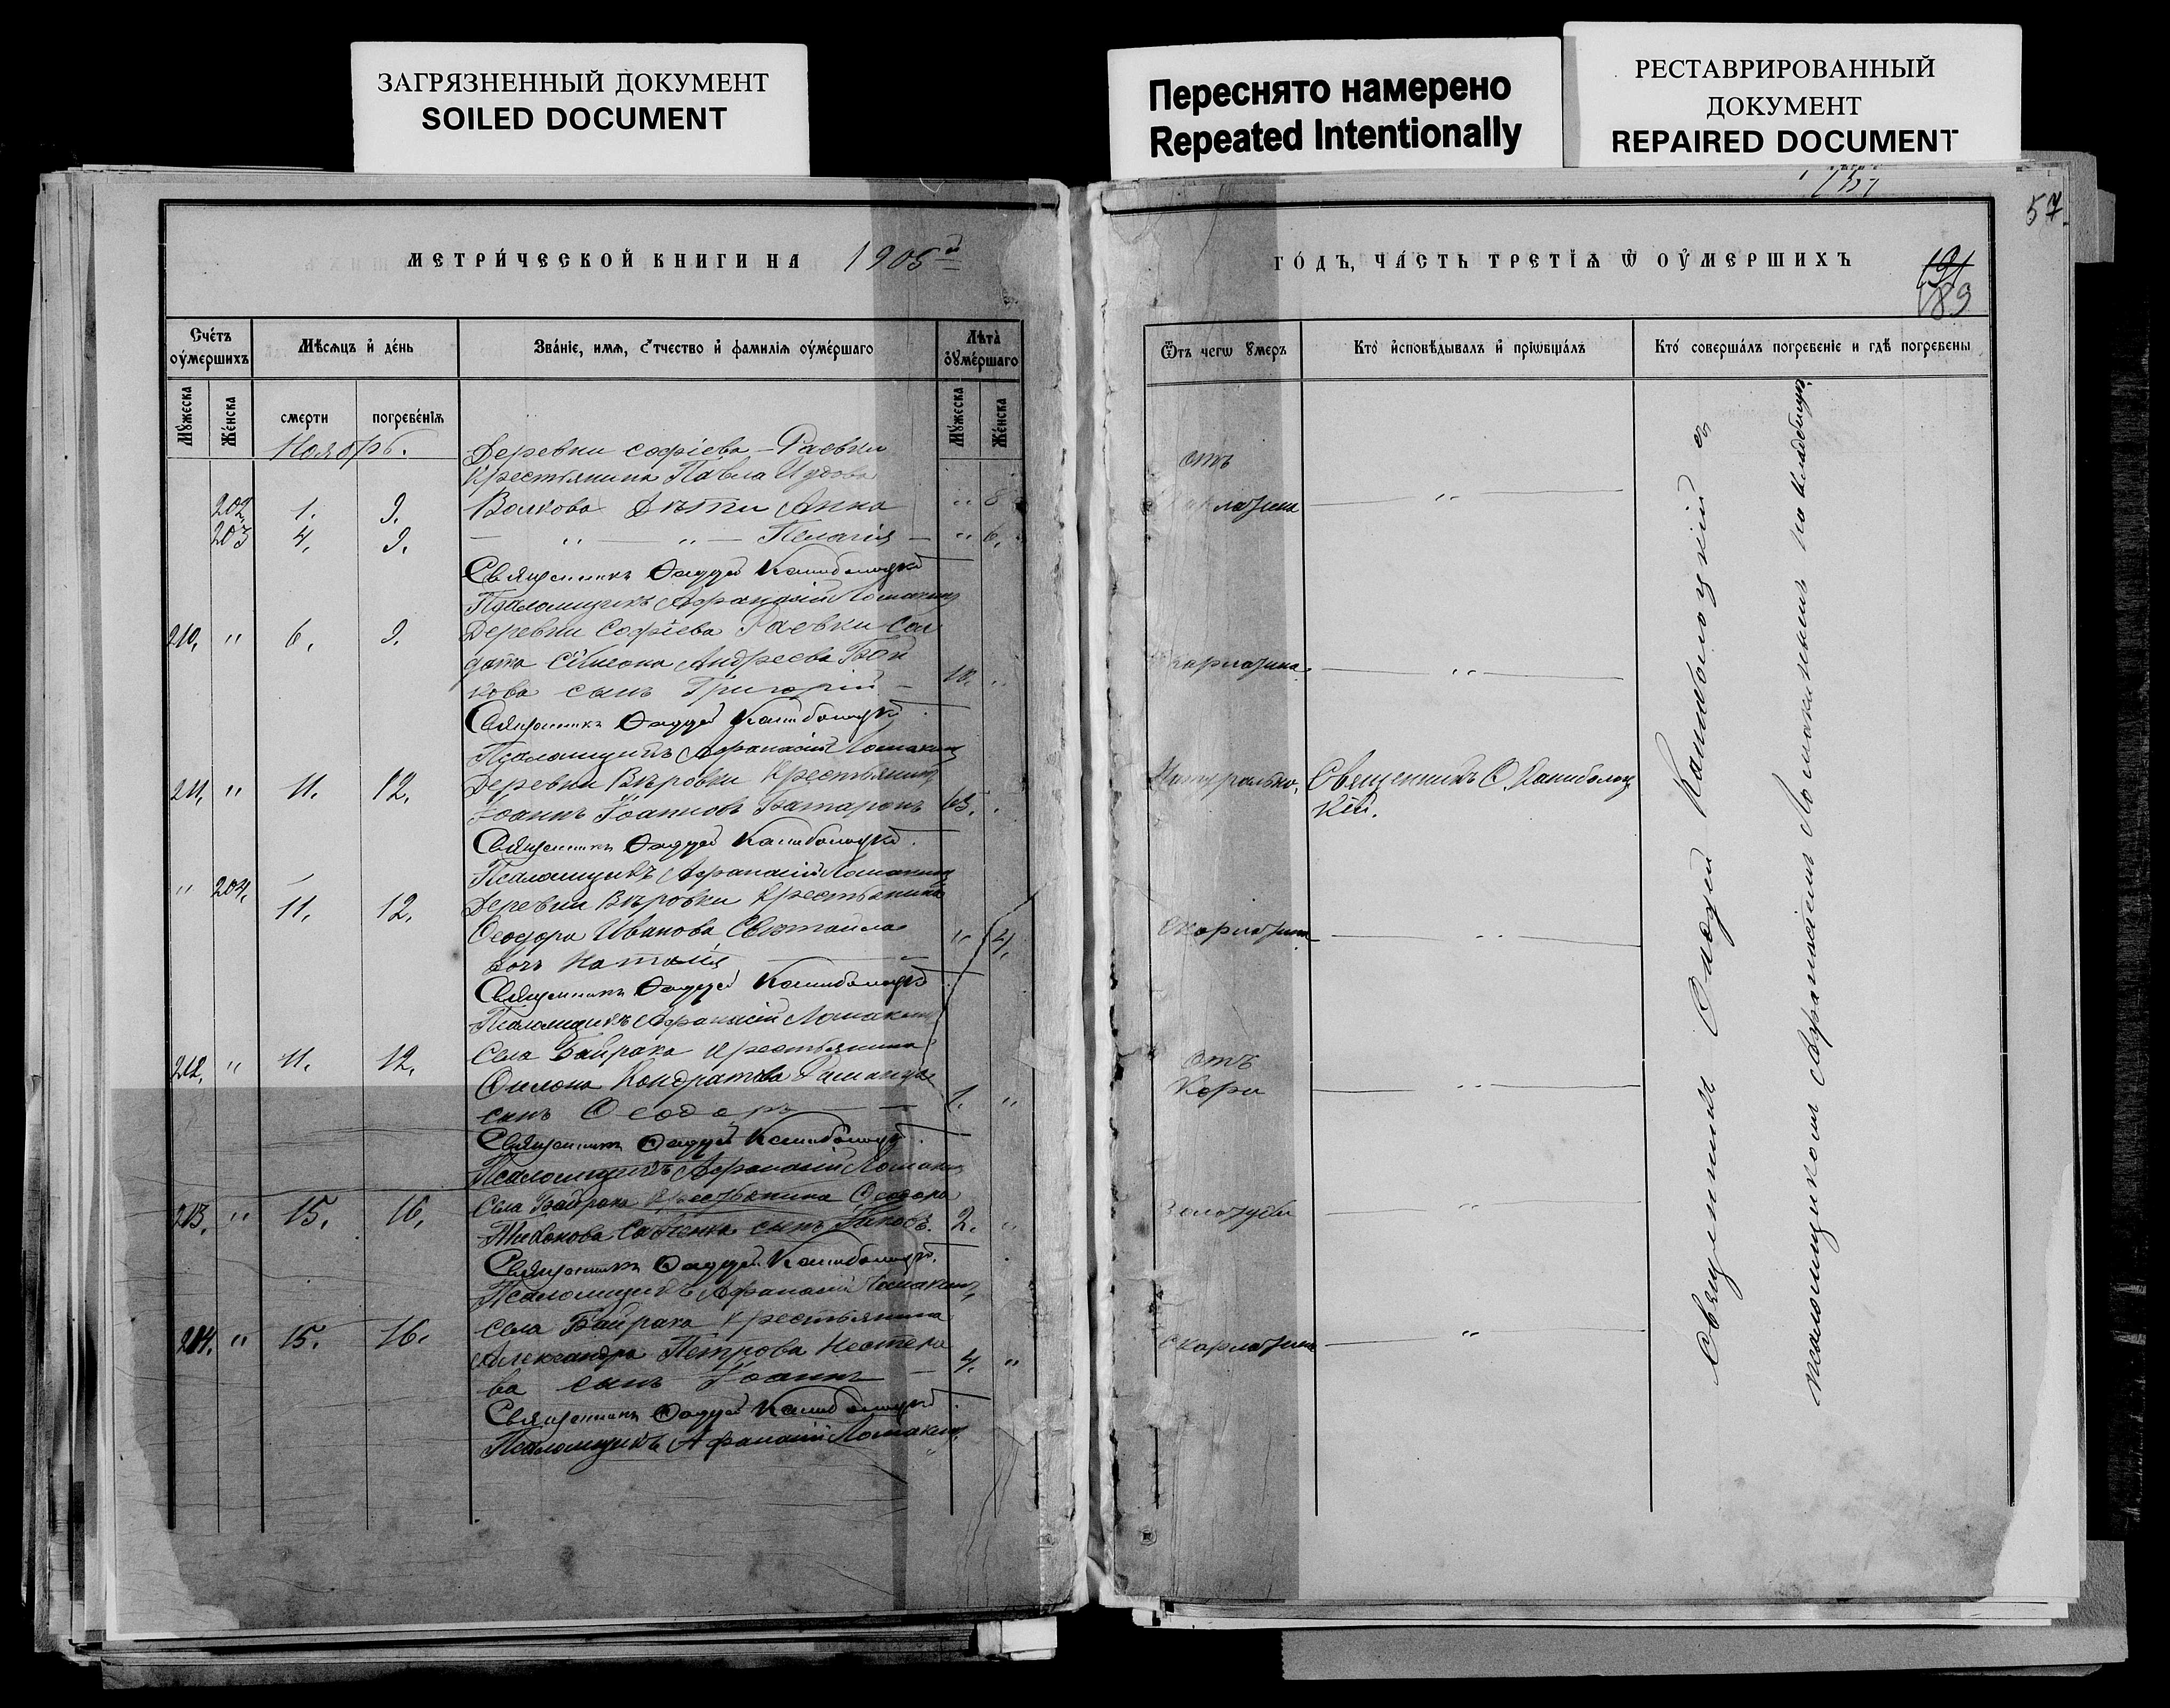 ЗАГРЯЗНЕННЫЙ ДОКУМЕНТ
SOILED DOCUMENT
Переснято намерено
Repeated Intentionally
РЕСТАВРИРОВАННЫЙ
ДОКУМЕНТ
REPAIRED DOCUMENT
57
МЕТРИ́ЧЕСКОЙ КНИГИ НА 1905
ГО́ДЪ, ЧА́СТЬ ТРЕТІѦ Ѿ ОУ҆МЕРШИХЪ
191
189
Сче́тъ оу҆мершихъ
Мѣсѧцъ и҆ де́нь
Зва́нїе, имѧ, ѻ҆тчество и҆ фамилїѧ оу҆ме́ршаго
Лѣта̀ оу҆ме́ршаго
Ѿтъ чегѡ ᲂумеръ
Кто̀ и҆сповѣ́дывалъ и҆ прїѡбща́лъ
Кто̀ соверша́лъ погребенїе и гдѣ̀ погребены
Мꙋ́жеска
Же́нска
смерти
погребе́нїѧ
Мꙋ́жеска
Же́нска
Ноябрь.
Деревни Софіева-Раевки
крестьянина Павла
202 1. 9. Волкова дѣти Анна " 8
отъ
203 4. 9. — " — " — Пелагія — " 6.
Священникъ Фаддей Канибολоцкій
Псаломщикъ Афанасій Ломакинъ
210. " 6. 9. Деревни Софіева Раевки Сол
дата Андреева
кова сынъ Григорій — 10. "
Скарлатина. — " —
Священникъ Фаддей Каниболоцкій
Псаломщикъ Афанасій Ломакинъ
211. " 11. 12. Деревни Вѣровки крестьянинъ
Іоаннъ Іоанновъ 63.
Натурально. Священникъ Ѳ. Каниболоц
кій.
Священникъ Фаддей Каниболоцкій
Псаломщикъ Афанасій Ломакинъ
" 204. 11. 12. Деревни Вѣровки крестьянина
Ѳеодора Иванова
дочь Наталія — " 4.
Скарлатина — " —
Священникъ Фаддей Каниболоцкій
Псаломщикъ Афанасій Ломакинъ
212. " 11. 12. Села Байрака крестьянина
Филона Кондратова
сынъ Ѳеодоръ — 1. "
отъ
Кори — " —
Священникъ Фаддей Каниболоцкій
Псаломщикъ Афанасій Ломакинъ
213. " 15. 16. Села Байрака крестьянина Ѳеодора
сынъ Яковъ. 2. "
— " —
Священникъ Фаддей Каниболоцкій
Псаломщикъ Афанасій Ломакинъ
214. " 15. 16. Села Байрака крестьянина
Александра Петрова Нестеро
ва сынъ Іоаннъ — 4. "
Скарлатина — " —
Священникъ Фаддей Каниболоцкій
Псаломщикъ Афанасій Ломакинъ
Священникъ Фаддей Каниболоцкій съ
псаломщикомъ Афанасіемъ Ломакинымъ на кладбищѣ